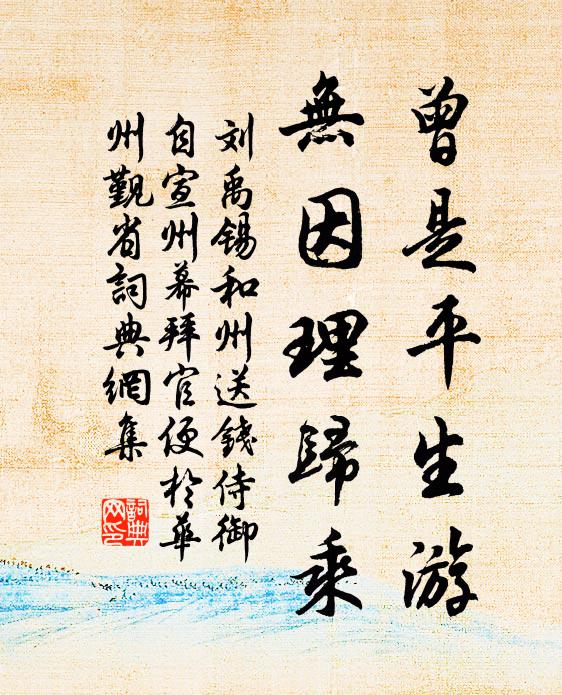 曾是平生游
無因理歸乘
刘禹锡和州送錢侍御
自宣州幕拜官便於華
州觐省詞典網集
詞典网印